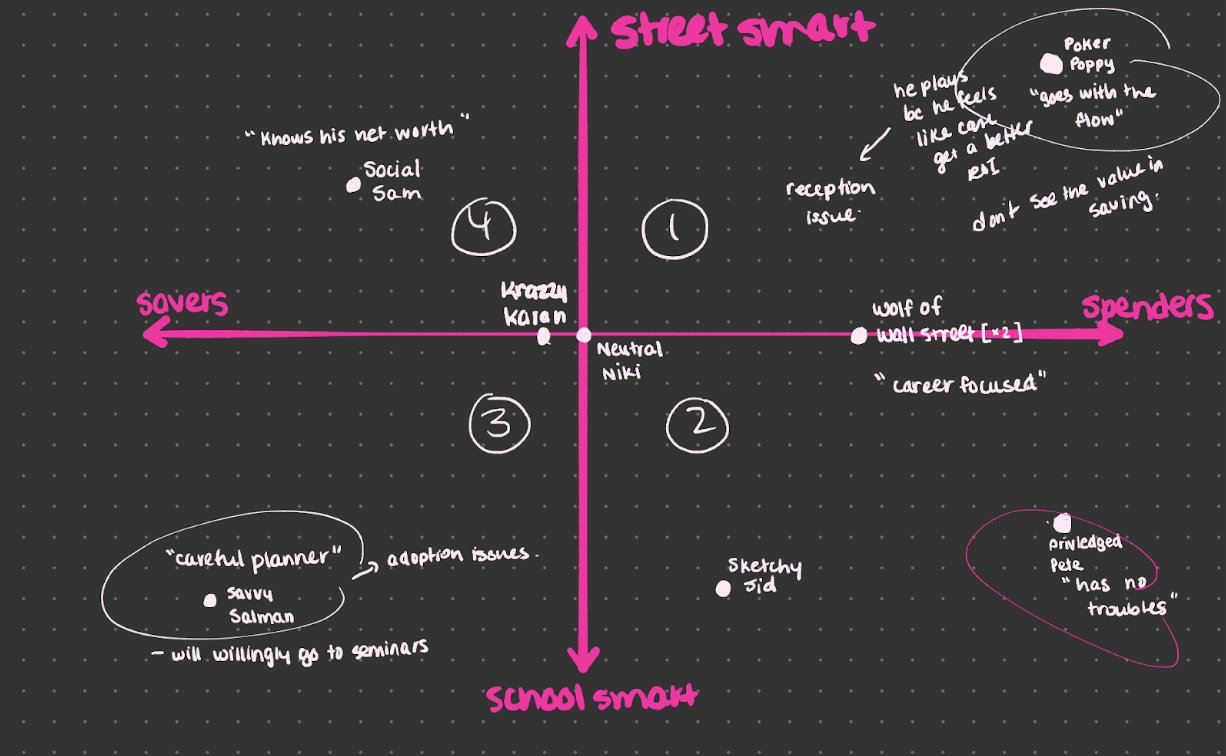 street smart
Poker
Poppy
"goes with the
flow"
he plays
bc he feels
like can
get a better
ROI
reception
issue.
don't see the value in
saving.
"Knows his net worth"
Social
Sam
4
1
savers
spenders
Krazzy
Karan
Neutral
Niki
Wolf of
Wall street [x2]
"career focused"
3
2
"careful planner"
adoption issues.
savvy
Salman
- will willingly go to seminars
Sketchy
Jid
priviledged
Pete
"has no
troubles"
school smart